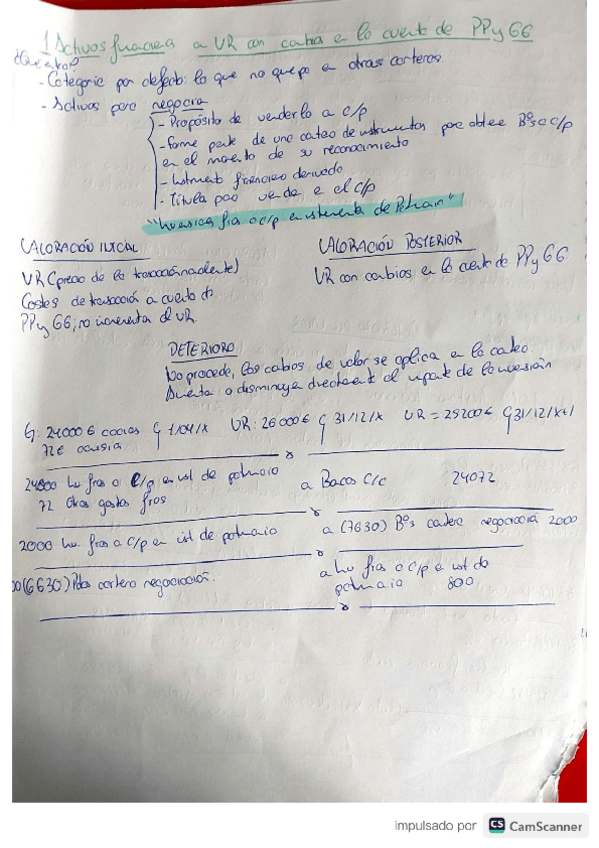 1 Activos financiera a VR con cambios en la cuenta de PPyGG
- Categoría por defecto: lo que no quepa en otras carteras
- Activos para negociar
- Propósito de venderlo a c/p
- Forme parte de una cartera de instrumentos para obtener Bºs a c/p
en el momento de su reconocimiento
- Instrumento financiero derivado
- Título para vender en el c/p
"Inversiones fras a c/p en instrumentos de Patrimonio"
VALORACIÓN INICIAL
VR (precio de la transacción)
Costes de transacción a cuenta de
PPyGG, no incrementa el VR.
VALORACIÓN POSTERIOR
VR con cambios en la cuenta de PPyGG
DETERIORO
No procede, los cambios de valor se aplica en la
Aumenta o disminuye directament el importe de la inversión
Ej: 24000€ 1/04/X VR: 26000€ 31/12/X VR = 25200€ 31/12/X+1
72€
24000 Inv fras a c/p en inst de patrimonio
72 Otros gastos fros
a Bancos c/c 24072
2000 Inv. fras a c/p en inst de patrimonio
a (7630) Bºs cartera negociación 2000
(6630) Pdas cartera negociación
a Inv fras a c/p en inst de
patrimonio 800
impulsado por CS CamScanner